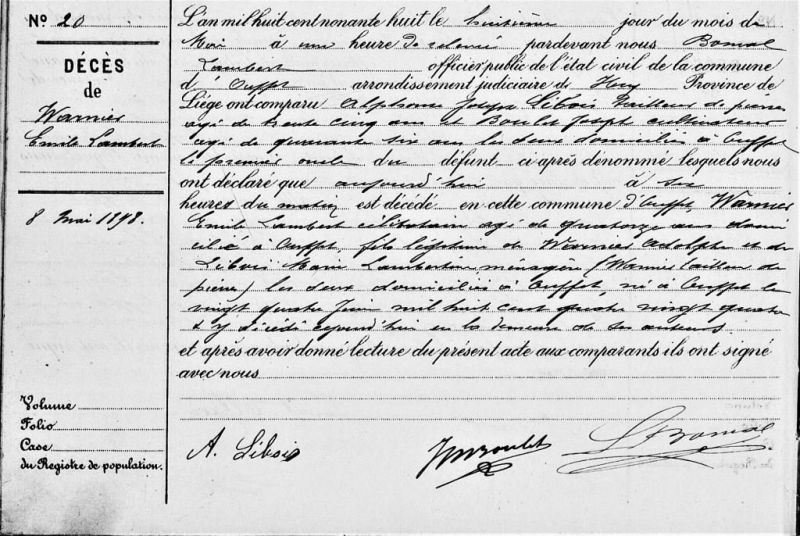 Nº 20
DÉCÈS
de
Warnier
Emile Lambert
8 Mai 1898.
Volume
Folio
Case
du Registre de population.
L'an mil huit cent nonante huit le huitième jour du mois de
Mai à une heure de relevée pardevant nous Bomal
Lambert officier public de l'état civil de la commune
d'Ouffet arrondissement judiciaire de Huy Province de
Liége ont comparu Alphonse Joseph Libois tailleur de pierres
agé de trente cinq ans et Boulet Joseph cultivateur
agé de quarante six ans les deux domiciliés à Ouffet
le premier oncle du défunt ci-après dénommé lesquels nous
ont déclaré que aujourd'hui à six
heures du matin est décédé en cette commune d'Ouffet, Warnier
Emile Lambert célibataire agé de quatorze ans domi
cilié à Ouffet, fils légitime de Warnier Adolphe et de
Libois Marie Lambertine ménagère (Warnier tailleur de
pierre) les deux domiciliés à Ouffet, né à Ouffet le
vingt quatre Juin mil huit cent quatre vingt quatre
& y décédé aujourd'hui en la demeure de ses auteurs.
et après avoir donné lecture du présent acte aux comparants ils ont signé
avec nous
A. Libois
Boulet
L Bomal